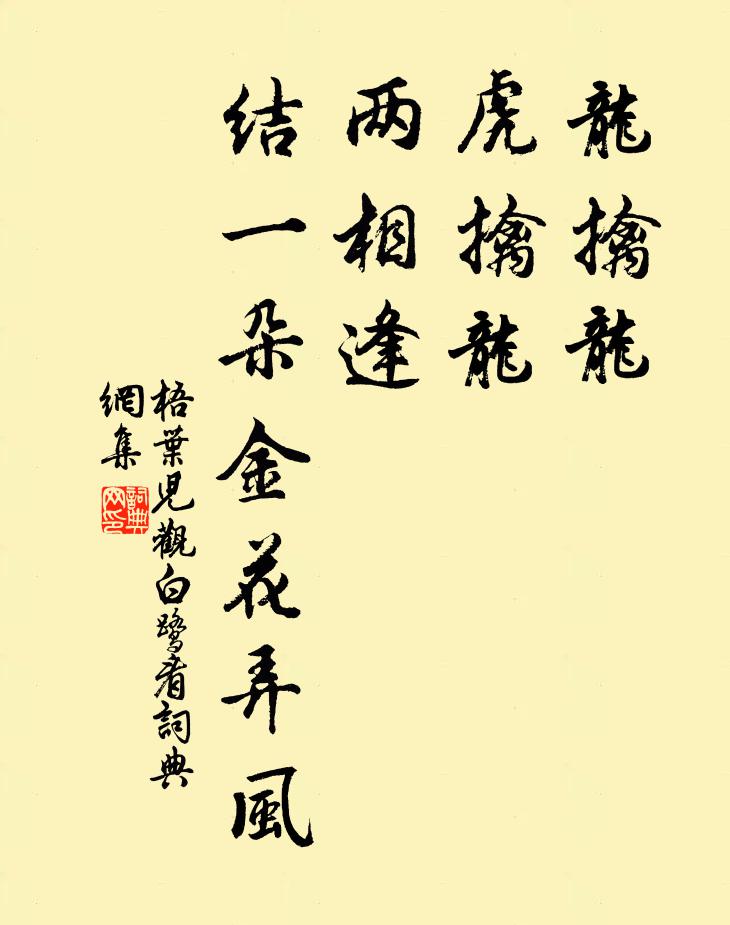 龍擒龍
虎擒龍
两相逢
结一朵金花弄風
梧葉兒觀白鹭者詞典
網集
詞典
网印